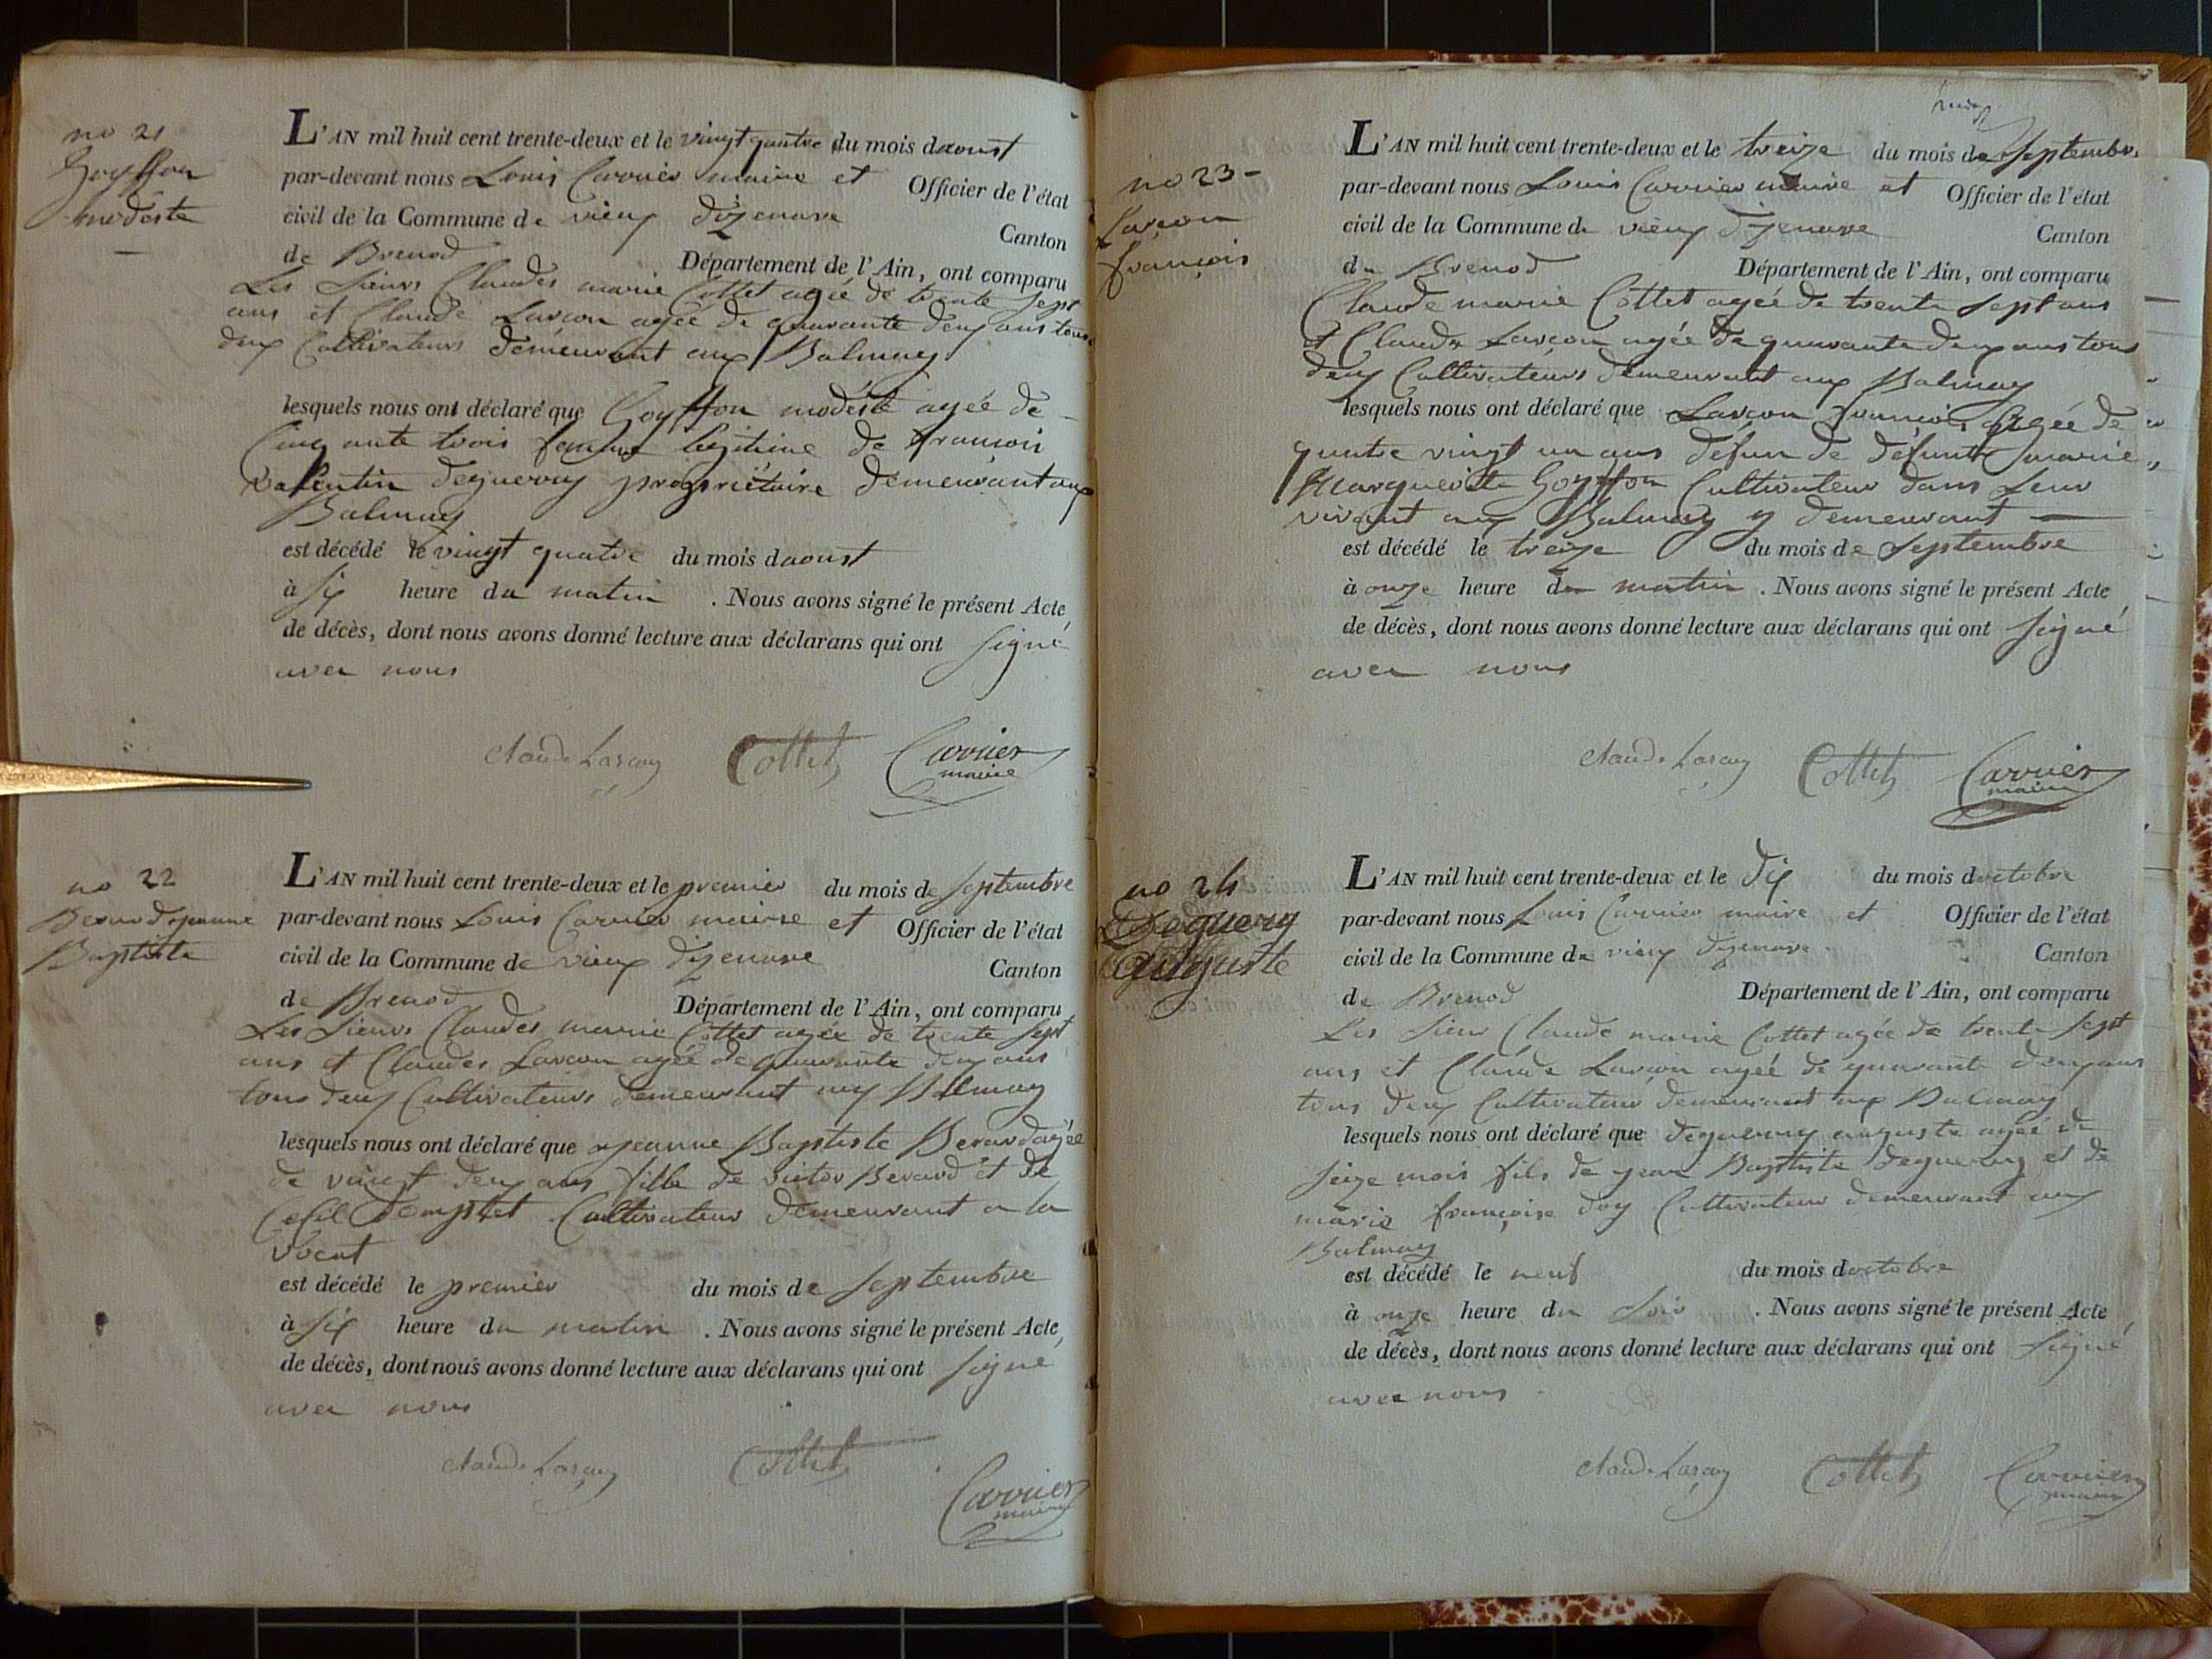 no 21
Goyffon
modeste
L'AN mil huit cent trente-deux et le vingt quatre du mois daoust
par-devant nous Louis Carrier maire et Officier de l'état
civil de la Commune de vieux dizenave Canton
de Brenod Département de l'Ain, ont comparu
Les Sieurs Claudes marie Cottet agée de trente sept
ans et Claude Larcon agée de quarante deux ans tous
deux Cultivateurs demeurant aux Balmay
lesquels nous ont déclaré que Goyffon modeste agée de
Cinquante trois femme legitime de francois
valentin deguerry propriétaire demeurant aux
Balmay
est décédé le vingt quatre du mois daoust
à six heure du matin . Nous avons signé le présent Acte
de décès, dont nous avons donné lecture aux déclarans qui ont signé
avec nous
claude Larçon Cottet Carrier
maire
no 22
Berard jeanne
Baptiste
L'AN mil huit cent trente-deux et le premier du mois de septembre
par-devant nous Louis Carrier maire et Officier de l'état
civil de la Commune de vieux dizenave Canton
de Brenod Département de l'Ain, ont comparu
Les Sieurs Claudes marie Cottet agée de trente sept
ans et Claudes Larcon agée de quarante deux ans
tous deux Cultivateurs demeurant aux Balmay
lesquels nous ont déclaré que jeanne Baptiste Berard agée
de vingt deux ans fille de victor Berard et de
Cultivateur demeurant a la
est décédé le premier du mois de septembre
à six heure du matin . Nous avons signé le présent Acte,
de décès, dont nous avons donné lecture aux déclarans qui ont signé
avec nous
claude Larçon Cottet
Carrier
maire
L'AN mil huit cent trente-deux et le treize du mois de septembre
no 23
Larcon
françois
par-devant nous Louis Carrier maire et Officier de l'état
civil de la Commune de vieux dizenave Canton
de Brenod Département de l'Ain, ont comparu
Claude marie Cottet agée de trente sept ans
et Claude Larcon agée de quarante deux ans tous
deux Cultivateurs demeurant aux Balmay
lesquels nous ont déclaré que Larcon françois agée de
quatre vingt un ans défun de défunte marie
Marguerite Goyffon Cultivateur dans Leur
vivant aux Balmay y demeurant
est décédé le treize du mois de septembre
à onze heure du matin . Nous avons signé le présent Acte
de décès, dont nous avons donné lecture aux déclarans qui ont signé
avec nous
claude Larçon Cottet Carrier
maire
no 24
Deguerry
Auguste
L'AN mil huit cent trente-deux et le dix du mois doctobre
par-devant nous Louis Carrier maire et Officier de l'état
civil de la Commune de vieux dizenave Canton
de Brenod Département de l'Ain, ont comparu
Les Sieur Claude marie Cottet agée de trente sept
ans et Claude Larcon agée de quarante deux ans
tous deux Cultivateur demeurant aux Balmay
lesquels nous ont déclaré que deguerry auguste agée de
seize mois fils de jean Baptiste deguerry et de
marie françoise doy Cultivateur demeurant aux
Balmay
est décédé le neuf du mois doctobre
à onze heure du soir . Nous avons signé le présent Acte
de décès, dont nous avons donné lecture aux déclarans qui ont signé
avec nous
claude Larçon Cottet Carrier
maire